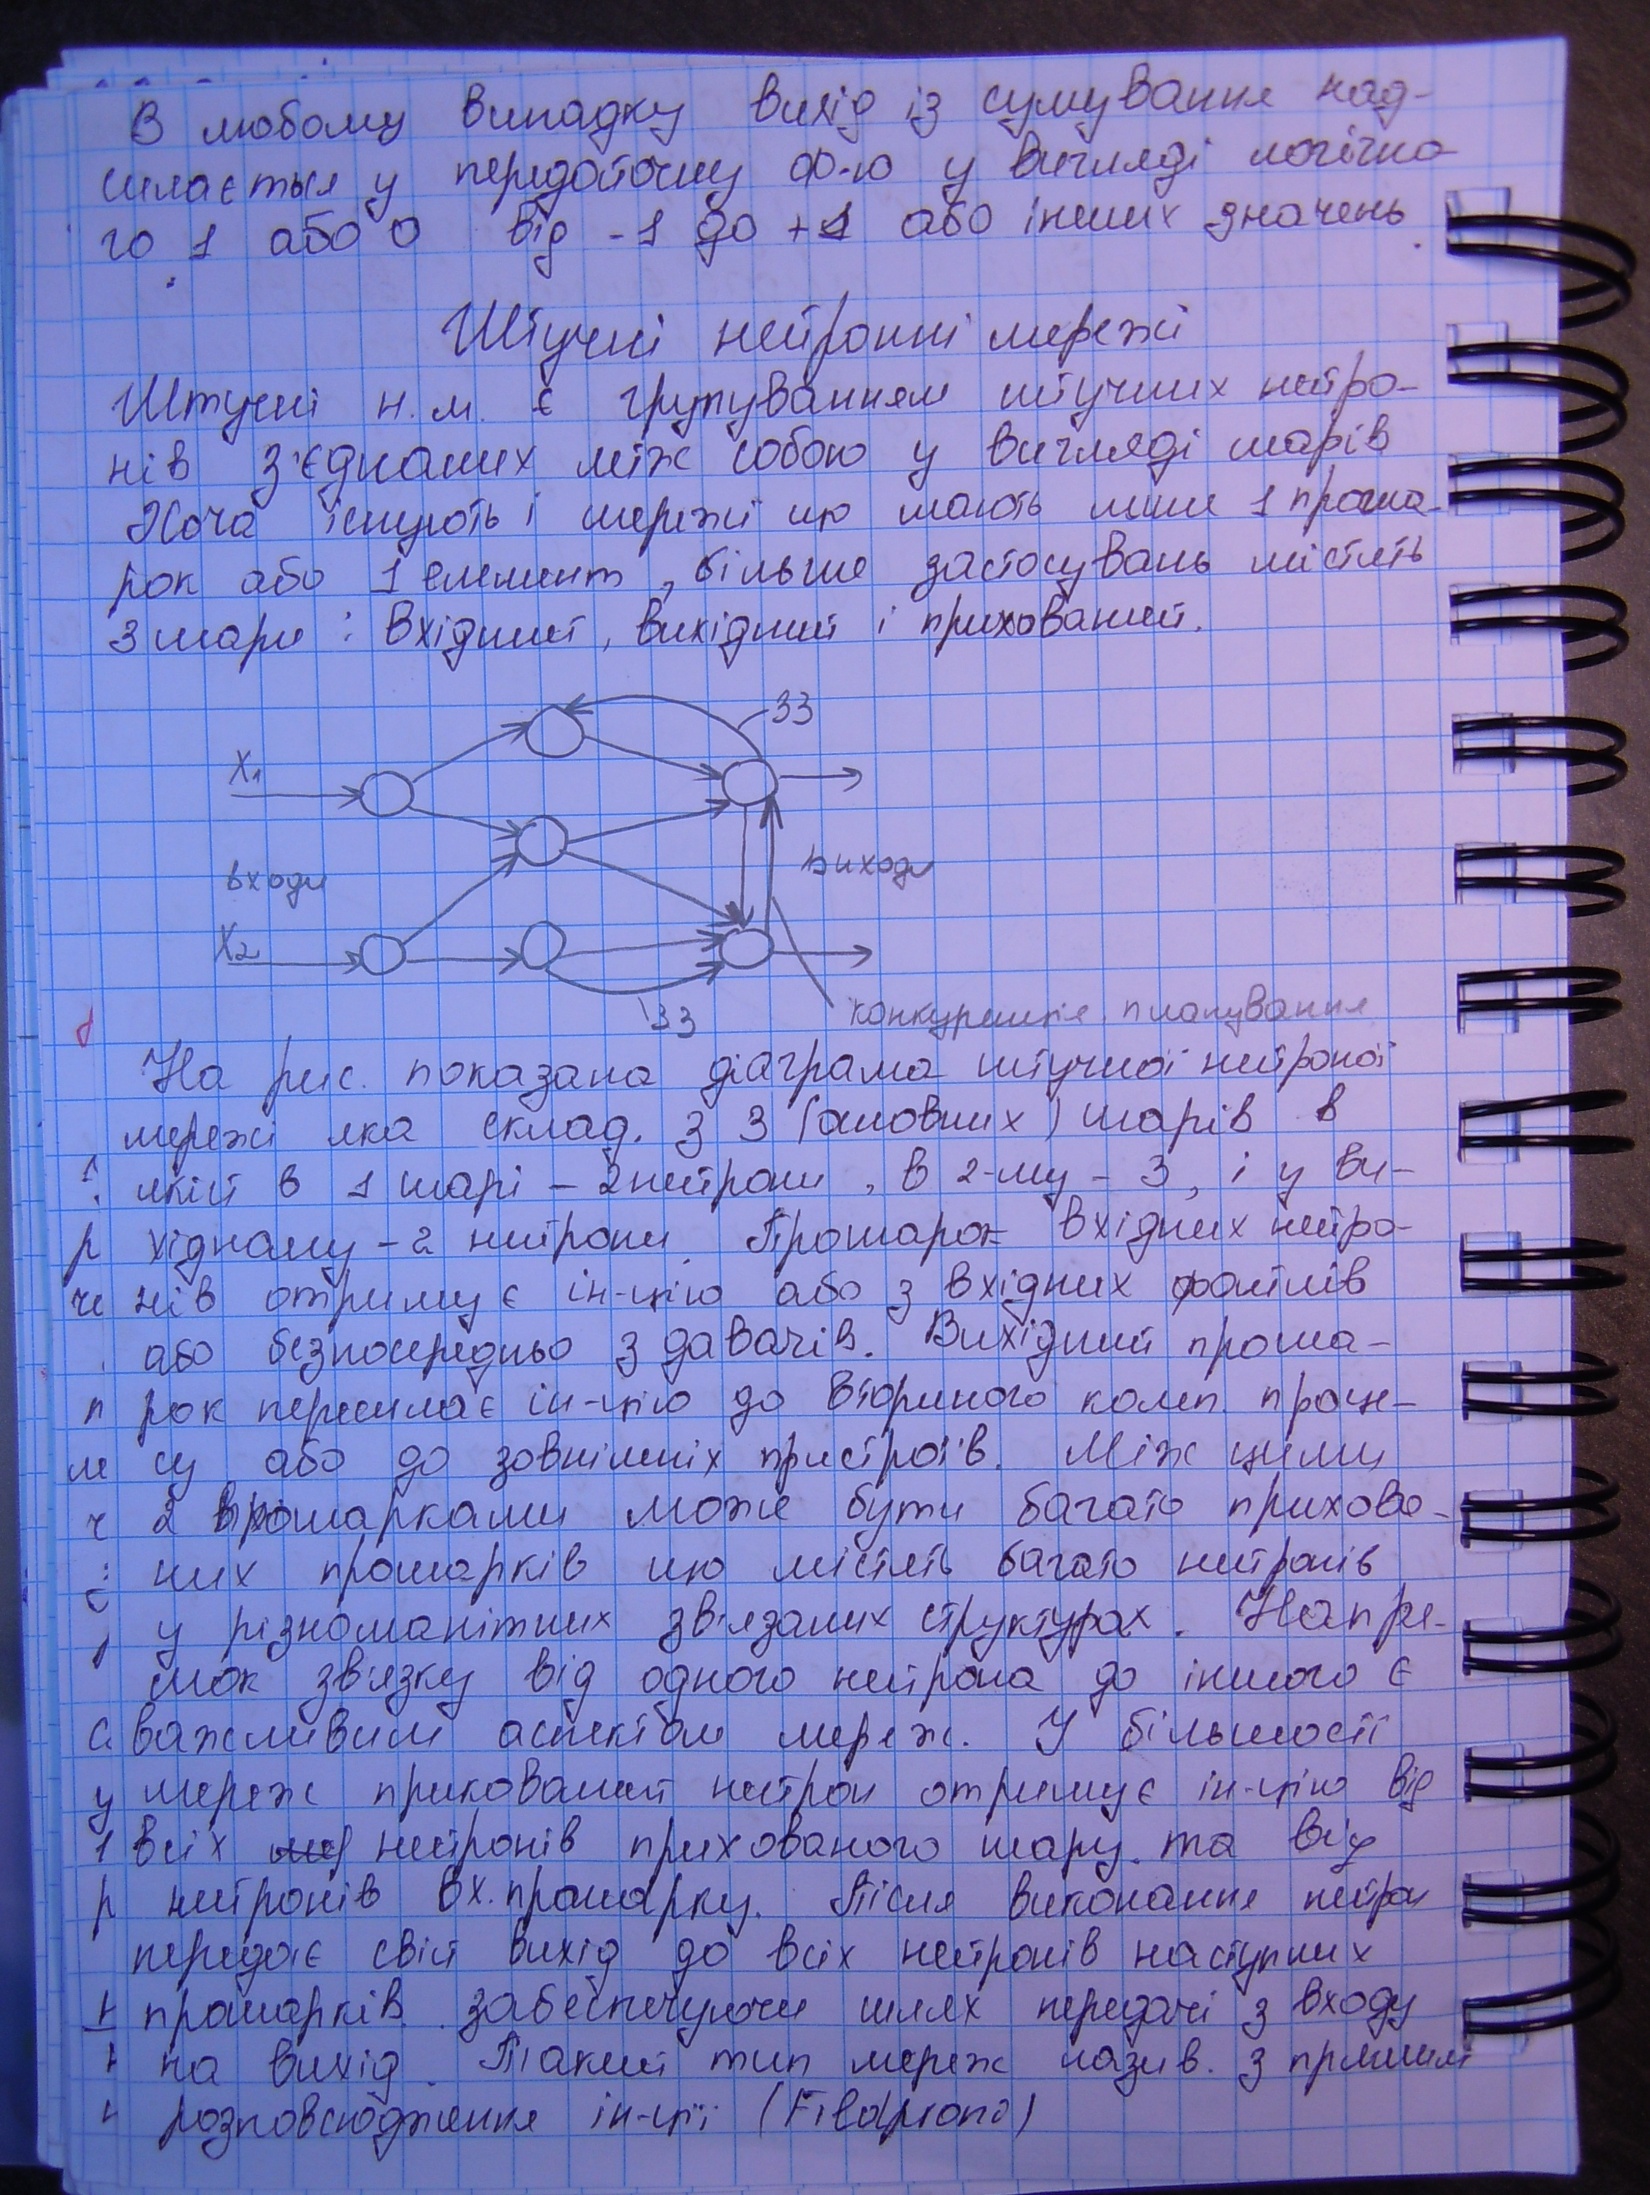 В любому випадку вихід із сумування над-
силається у передаточну ф-ю у вигляді логічно-
го 1 або 0 від -1 до +1 або інших значень.
Штучні нейронні мережі
Штучні н.м. є групуванням штучних нейро-
нів з'єднаних між собою у вигляді шарів
Хоча існують і мережі що мають лише 1 проша-
рок або 1 елемент, більше застосувань містять
3 шари: вхідний, вихідний і прихований.
33
X1
входи
виходи
X2
33
конкуренція планування
На рис. показана діаграма штучної нейроної
мережі яка склад. з 3 (основних) шарів в
якій в 1 шарі - 2 нейрони, в 2-му - 3, і у ви-
хідному - 2 нейрони. Прошарок вхідних нейро-
нів отримує ін-цію або з вхідних файлів
або безпосередньо з давачів. Вихідний проша-
рок пересилає ін-цію до вториного комп. проце-
су або до зовнішніх пристроїв. Між цими
2 прошарками може бути багато прихова-
них прошарків що містять багато нейронів
у різноманітних звязаних структурах. Напря-
мок звязку від одного нейрона до іншого є
важливим аспектом мереж. У більшості
мереж прихований нейрон отримує ін-цію від
всіх нейронів прихованого шару та від
нейронів вх. прошарку. Після виконання нейрон
передає свій вихід до всіх нейронів наступних
прошарків забеспечуючи шлях передачі з входу
на вихід. Такий тип мереж назив. з прямим
розповсюдження ін-ції